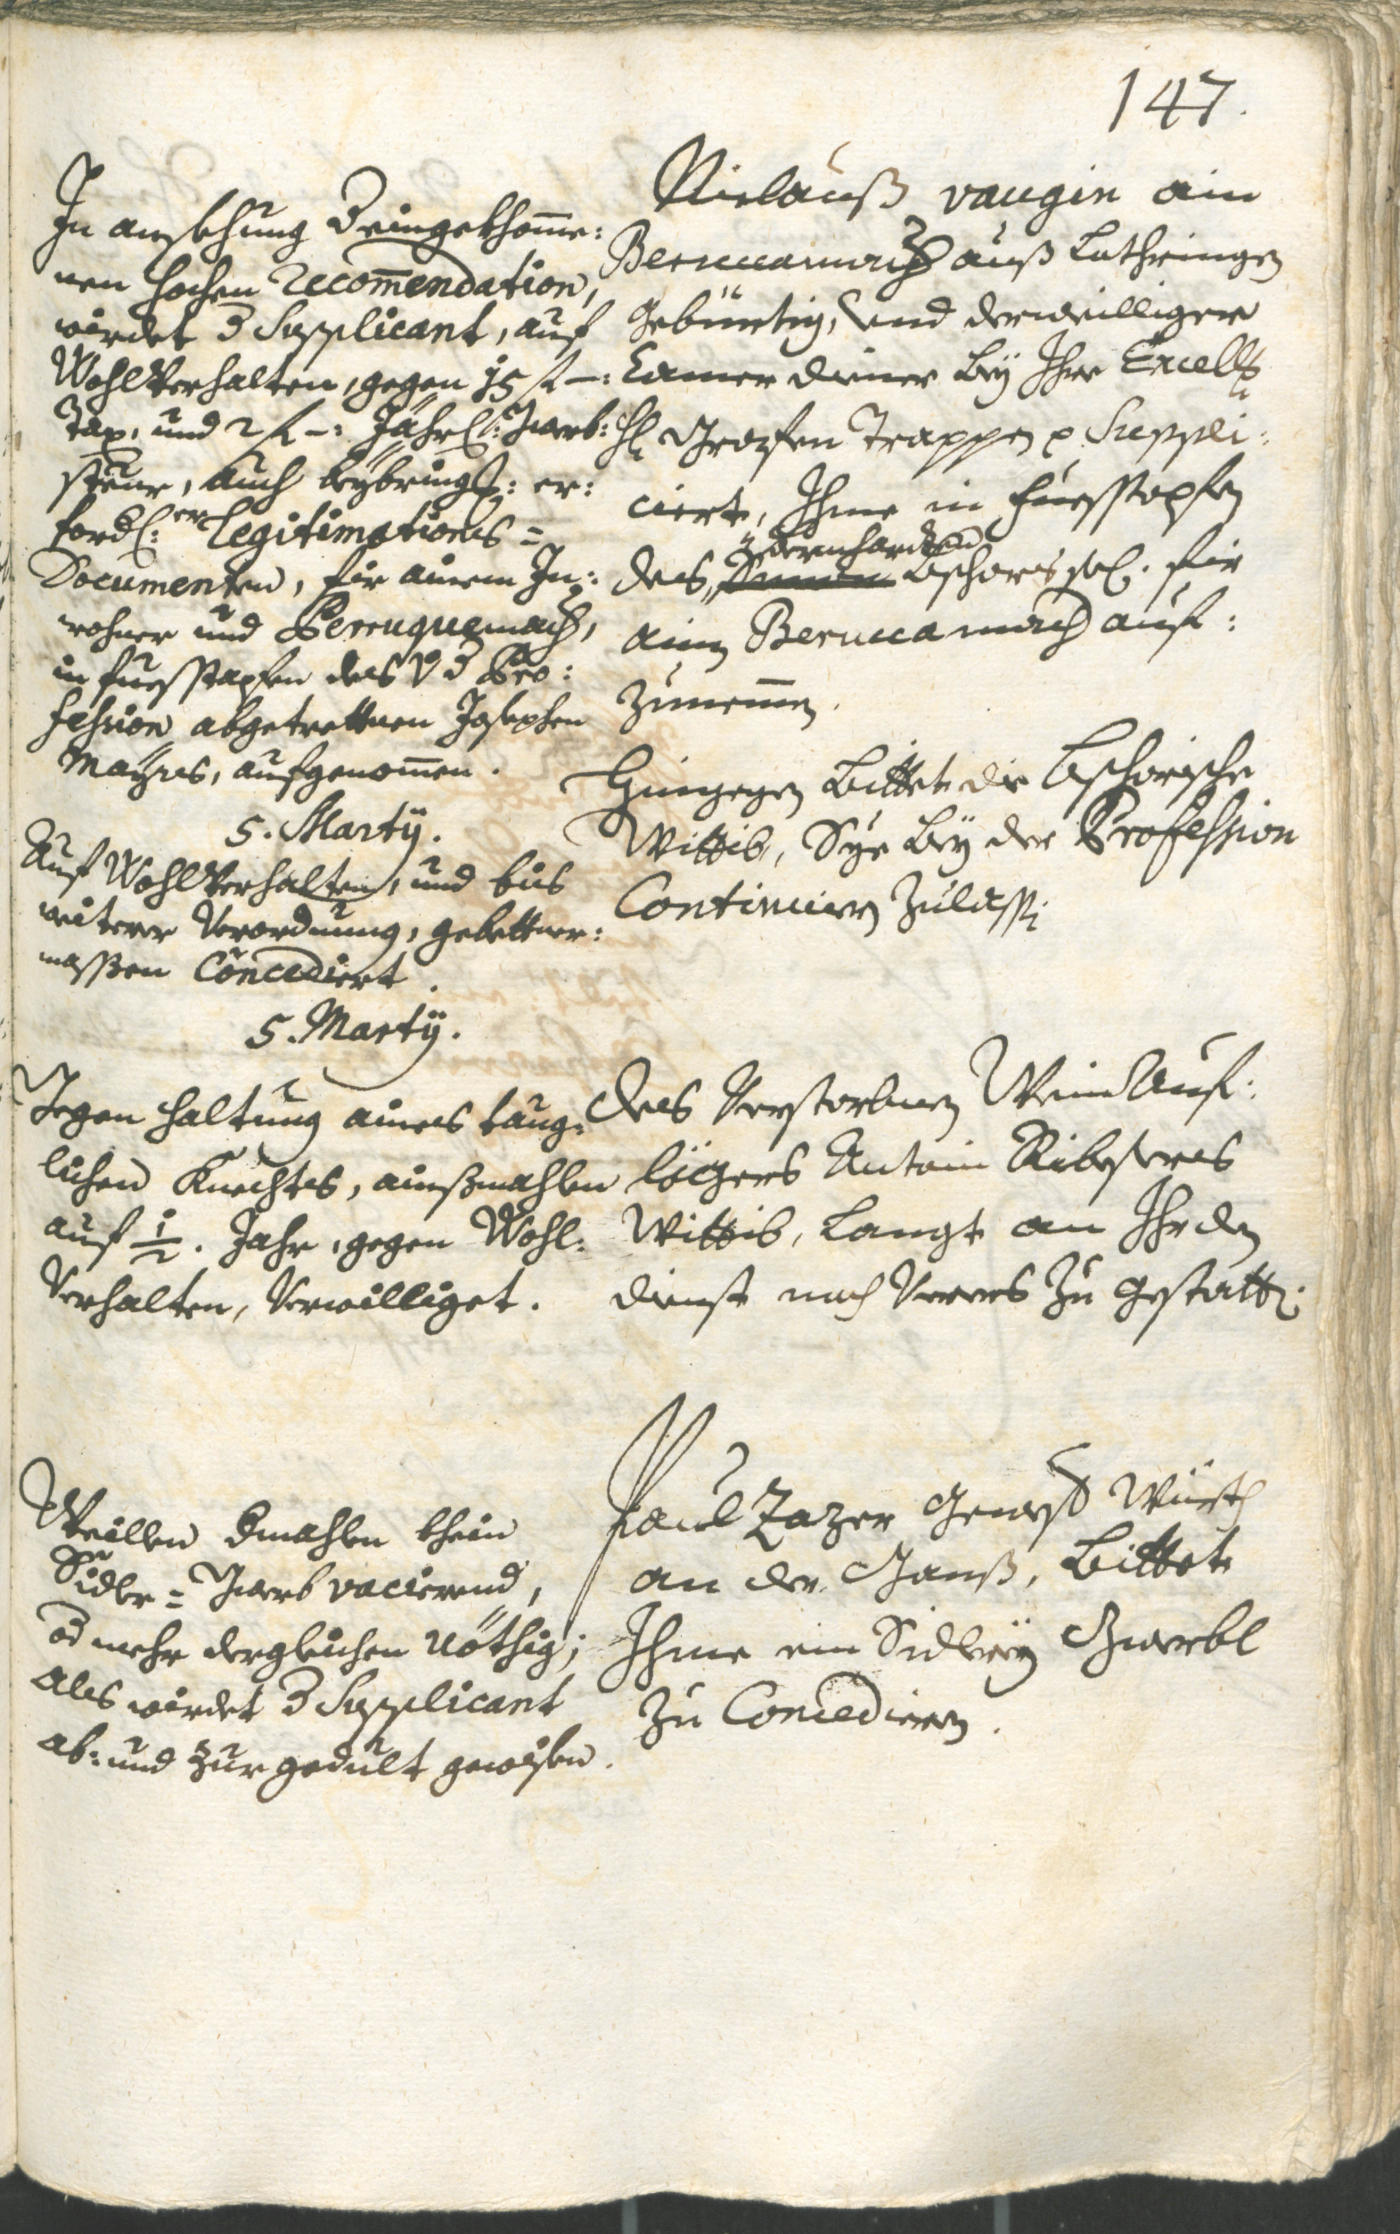 147.
In ansehung der eingekhom̄e:
nen hochen recom̄endation,
wirdet der Supplicant, auf
Wohlverhalten, gegen 15 f –:
Tax, und 2 f –: Jährl: Gwerb:
steur, auch beybringg: er:
fordl:er legitimations=
Documenten, für ainem In:
wohner und Perruquemacher,
in fuesstapfen des von der Pro:
fession abgetrettnen Josephen
Mayrs, aufgenom̄en.
5. Marty.
Auf Wohlverhalten, und bis
weitere Verordnung, gebettner:
massen Concediert.
5. Marty.
Gegen haltung aines taug:
lichen Knechtes, ainßmahlen
auf 1/2. Jahr, gegen Wohl:
Verhalten, Verwilliget.
Weillen dermahlen khein
Sidler= Gwerb vacierend,
oder mehr dergleichen nöthig;
Als wirdet der Supplicant
ab: und zur gedult gewisen.
Niclauß vaugin ain
Beruccamacher auß Lothringen
Gebürtig, und derweilliger
Camer diener bey Ihro Excell:
H: Grafen Trappen p Suppli:
ciert, Ihme in fuesstapfen
des Bernhardten Lschoris sel. für
ainen Beruccamacher auf:
Zunemen.
Hingegen Bittet die Lschorische
Wittib, Sye bey der Profession
Continuiern Zulassen
Des Verstorbnen Wein Auf:
legers Antoni Ribisers
Wittib, Langt an Ihr den
dienst noch Verers Zu gestatten.
Paul Zazer Gewester Würth
an der Ganß, Bittet
Ihme ein Sidlerey Gwerbl
Zu Concediern.